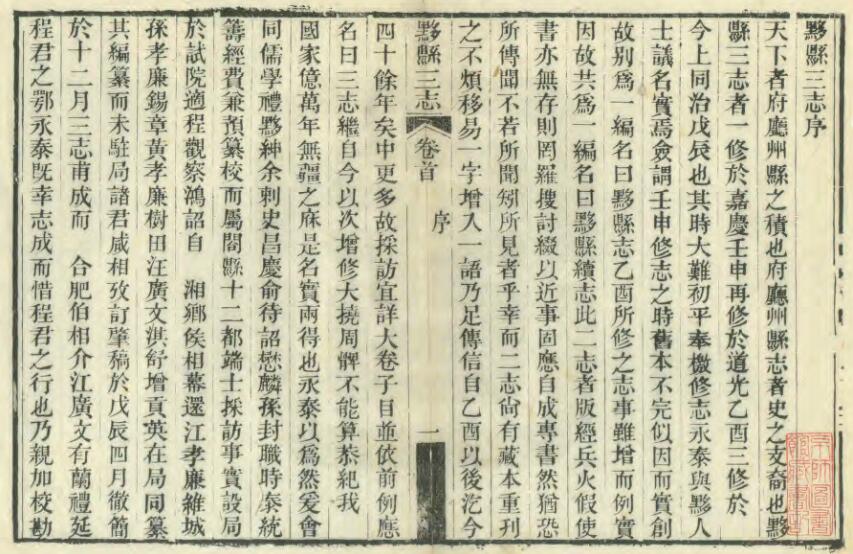 黟縣三志序
天下者府廳州縣之積也府廳州縣志者史之支裔也黟
縣三志者一修於嘉慶壬申再修於道光乙酉三修於
今上同治戊辰也其時大難初平奉檄修志永泰與黟人
士議名實焉僉謂壬申修志之時舊本不完似因而實創
故別爲一編名曰黟縣志乙酉所修之志事雖增而例實
因故共爲一編名曰黟縣續志此二志者版經兵火假使
書亦無存則罔羅搜討綴以近事固應自成專書然猶恐
所傳聞不若所聞矧所見者乎幸而二志尙有藏本重刊
之不煩移易一字增入一語乃足傳信自乙酉以後汔今
黟縣三志
卷首
序
一
四十餘年矣中更多故採訪宜詳大卷子目並依前例應
名曰三志繼自今以次增修大撓周髀不能算恭紀我
國家億萬年無疆之庥是名實兩得也永泰以爲然爰會
同儒學禮黟紳余刺史昌慶俞待詔懋麟孫封職時泰統
籌經費兼預纂校而屬閤縣十二都端士採訪事實設局
於試院適程觀察鴻詔自 湘鄉侯相幕還江孝廉維城
孫孝廉錫章黃孝廉樹田汪廣文淇舒增貢英在局同纂
其編纂而未駐局諸君咸相攷訂肇稿於戊辰四月徹簡
於十二月三志甫成而 合肥伯相介江廣文有蘭禮延
程君之鄂永泰旣幸志成而惜程君之行也乃親加校勘